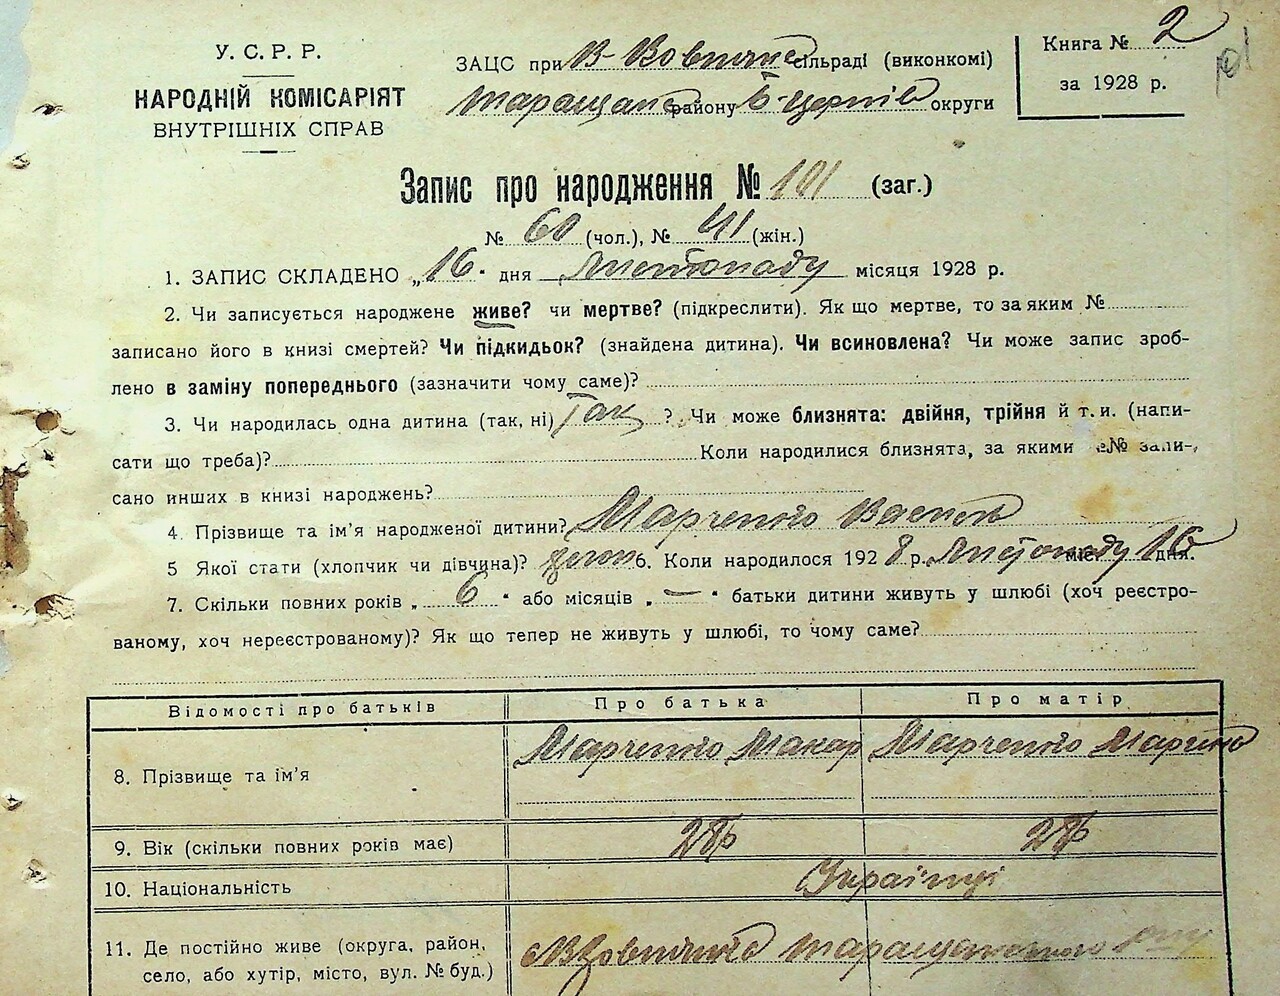 У. С. Р. Р.
НАРОДНІЙ КОМІСАРІЯТ
ВНУТРІШНІХ СПРАВ
ЗАЦС при В-Вовнянс сільраді (виконкомі)
Таращанс району Б-Церків округи
Книга № 2
за 1928 р.
101
Запис про народження № 101 (заг.)
№ 60 (чол.), № 41 (жін.)
1. ЗАПИС СКЛАДЕНО „16" дня Листопаду місяця 1928 р.
2. Чи записується народжене живе? чи мертве? (підкреслити). Як що мертве, то за яким №
записано його в книзі смертей? Чи підкидьок? (знайдена дитина). Чи всиновлена? Чи може запис зроб-
лено в заміну попереднього (зазначити чому саме)?
3. Чи народилась одна дитина (так, ні) Так ? Чи може близнята: двійня, трійня й т. и. (напи-
сати що треба)? Коли народилися близнята, за якими №№ запи-
сано инших в книзі народжень?
4. Прізвище та ім'я народженої дитини? Марченко Василь
5 Якої стати (хлопчик чи дівчина)? 6. Коли народилося 1928 р. Листопаду міс. 16 дня.
7. Скільки повних років „ 6 " або місяців „ — " батьки дитини живуть у шлюбі (хоч реєстро-
ваному, хоч нереєстрованому)? Як що тепер не живуть у шлюбі, то чому саме?
Відомості про батьків Про батька Про матір
8. Прізвище та ім'я Марченко Макар Марченко Марина
9. Вік (скільки повних років має) 28р 28р
10. Національність Українці
11. Де постійно живе (округа, район,
село, або хутір, місто, вул. № буд.) Таращанського р-ну